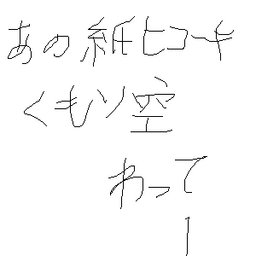 あの紙ヒコーキ
くもり空
わって